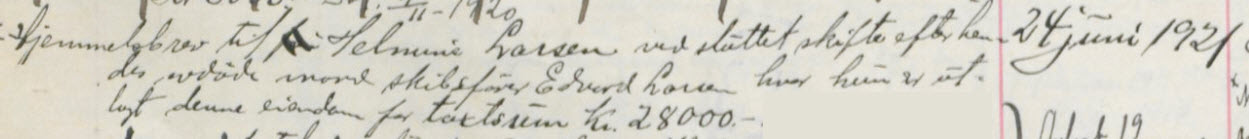 II - 1920
Hjemmelsbrev til Selmine Larsen ved sluttet skifte efter hen- 24 juni 1921
des avdöde mand skibsförer Edvard Larsen hvor hun er ut-
lagt denne eiendom for taxtsum kr. 28000.-